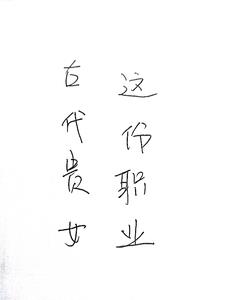 这份职业
古代贵女